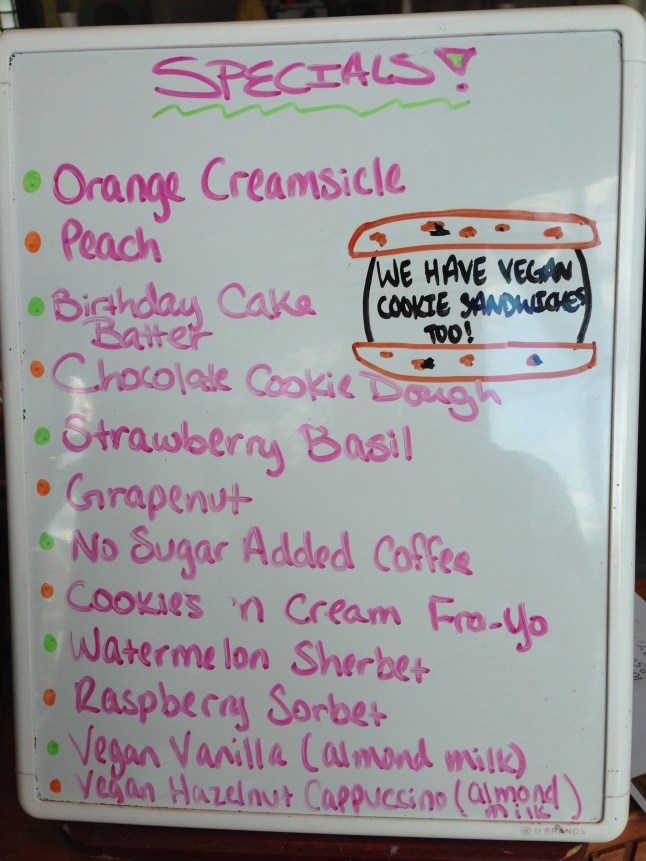 SPECIALS!
Orange Creamsicle
Peach
Birthday Cake
Batter
Chocolate Cookie Dough
Strawberry Basil
Grapenut
No Sugar Added Coffee
Cookies 'n Cream Fro-Yo
Watermelon Sherbet
Raspberry Sorbet
Vegan Vanilla (almond milk)
Vegan Hazelnut Cappuccino (almond
milk)
WE HAVE VEGAN
COOKIE SANDWICHES
TOO!
U BRANDS